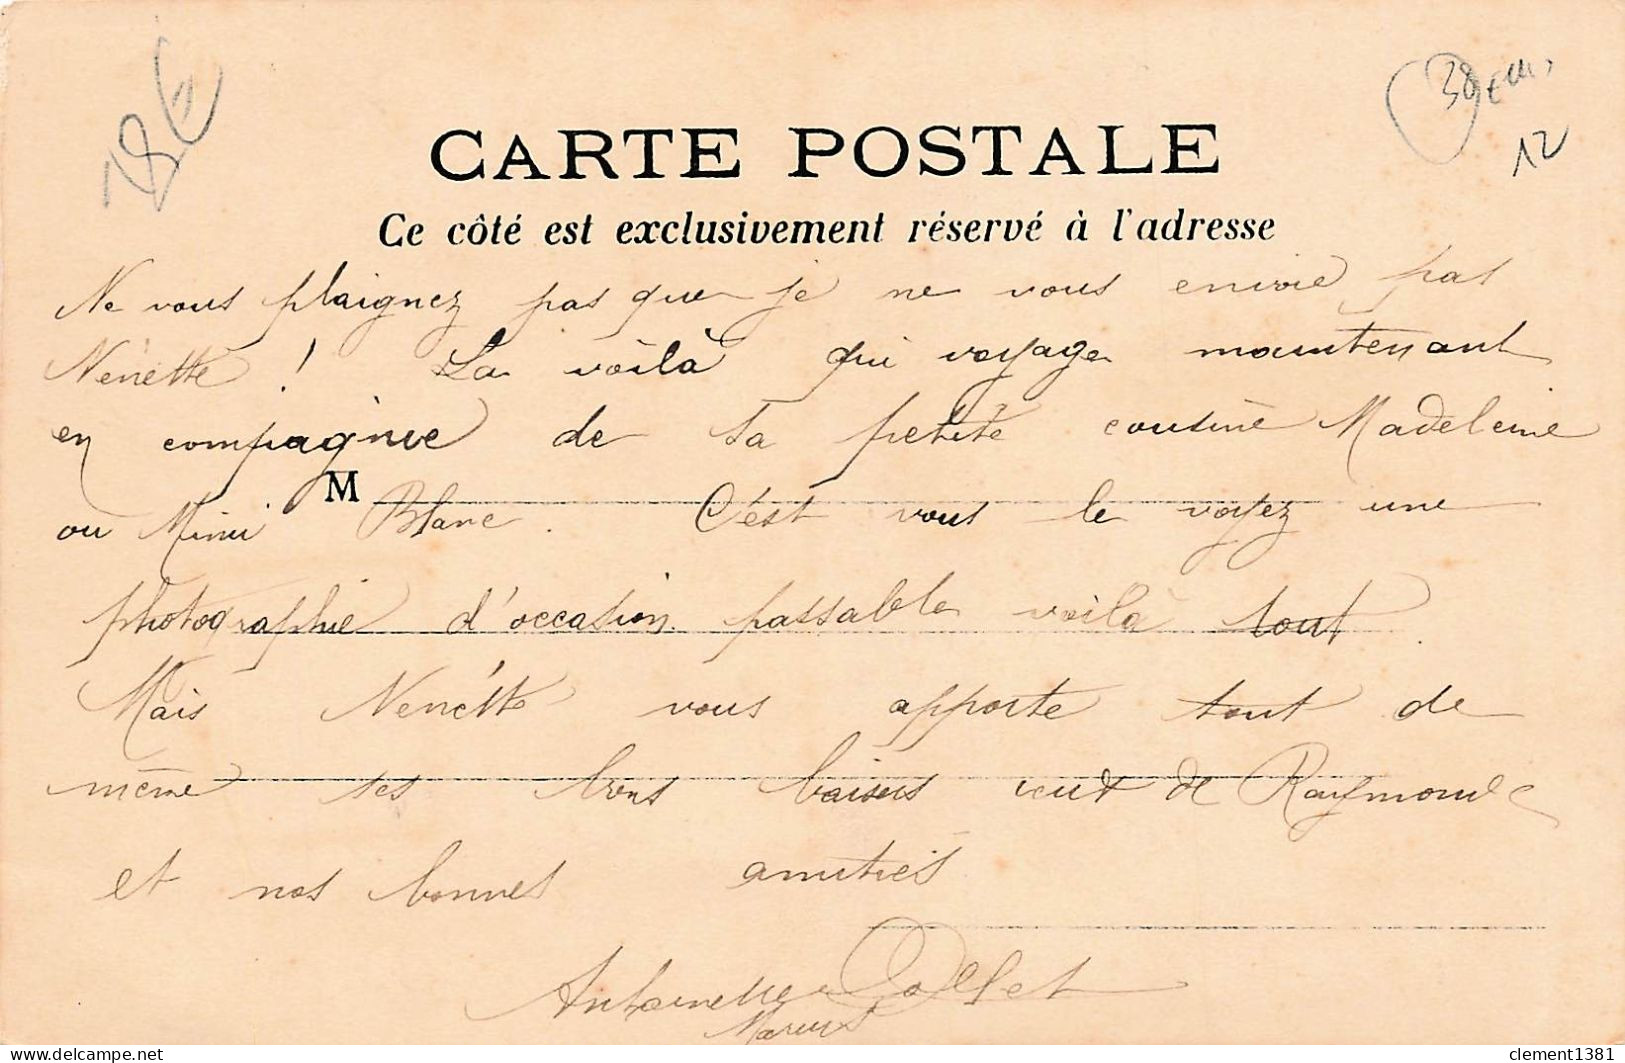 18€
38
12
CARTE POSTALE
Ce côté est exclusivement réservé à l'adresse
Ne vous plaignez pas que je ne vous envoie pas
Nénette ! La voilà qui voyage maintenant
en compagnie de sa petite cousine Madeleine
M
ou Mimi Blanc. C'est vous le voyez une
photographie d'occasion passable voilà tout.
Mais Nénette vous apporte tout de
même ses bons baisers de Raymonde
et nos bonnes amitiés
Antoinette
Marius
clement1381